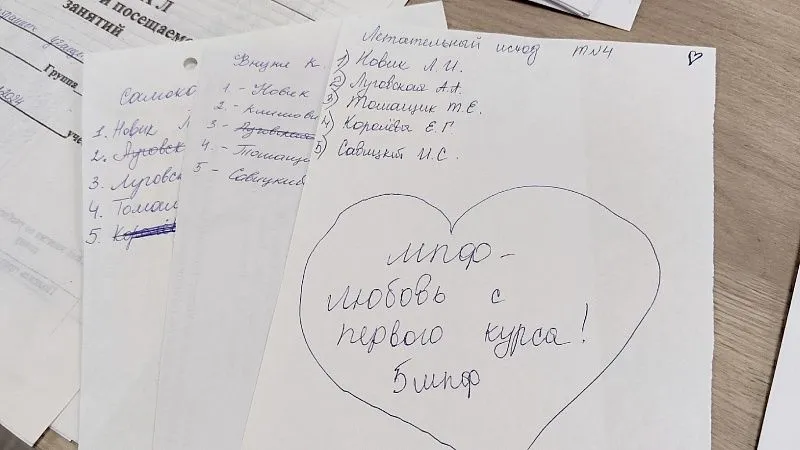 и посещаемо
занятий
Группа
Самоко
1. Новик Л
2. Луговск
3. Луговск
4. Томащ
5.
Внуки К.
1. - Новик
2. - Климови
3 - Луговская
4. - Томащи
5 - Савицкий
Летательный исход тN4
1) Новик Л.И.
2) Луговская А.А.
3) Томащик Т.Е.
4) Королёва Е.Г.
5) Савицкий И.С.
МПФ -
любовь с
первого курса!
5мпф